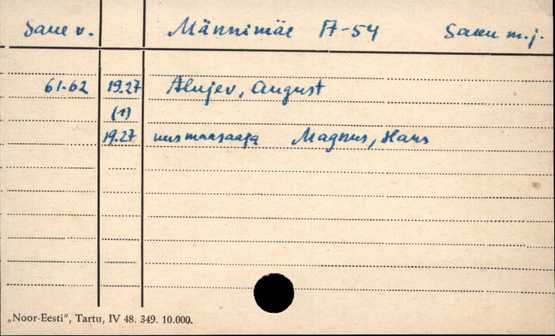 Saue v. Männimäe A-54 Saue m.j.
61-62 19.27 Alujev, August
(1)
19.27 uusmaasaaja Magnus, Hans
„Noor-Eesti“, Tartu, IV 48. 349. 10.000.